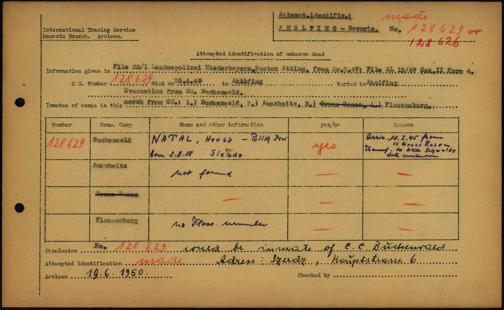 Attempt.Identif.: made
International Tracing Service
Records Branch. Arolsen.
AHOLFING - Bavaria. No. 128629 or
128626
Attempted identification of unknown dead
Information given in File 22/1 Landespolizei Niederbayern, Posten Atting, from
C.C. Number 128629 died on 25.4.45 Aholfing buried in Aholfing
Evacuation from CC. Buchenwald
Inmates of camps in this march from CC. 1.) Buchenwald, 2.) Auschwitz, 3.) Gross Rosen, 4.) Flossenburg.
Number Conc. Camp Name and other information yes/no Reason
128629 Buchenwald NATAL, Hersz - Polish Jew yes Arriv. 10.2.45 from
Born 2.8.18 Gross Rosen
Auschwitz not found
Gross Rosen
Flossenburg no Floss. number
Conclusion No. 128629 could be inmate of C.C. Buchenwald
Attempted identification made Adress: Hauptstrasse 6
Arolsen 19.6.1950 Checked by